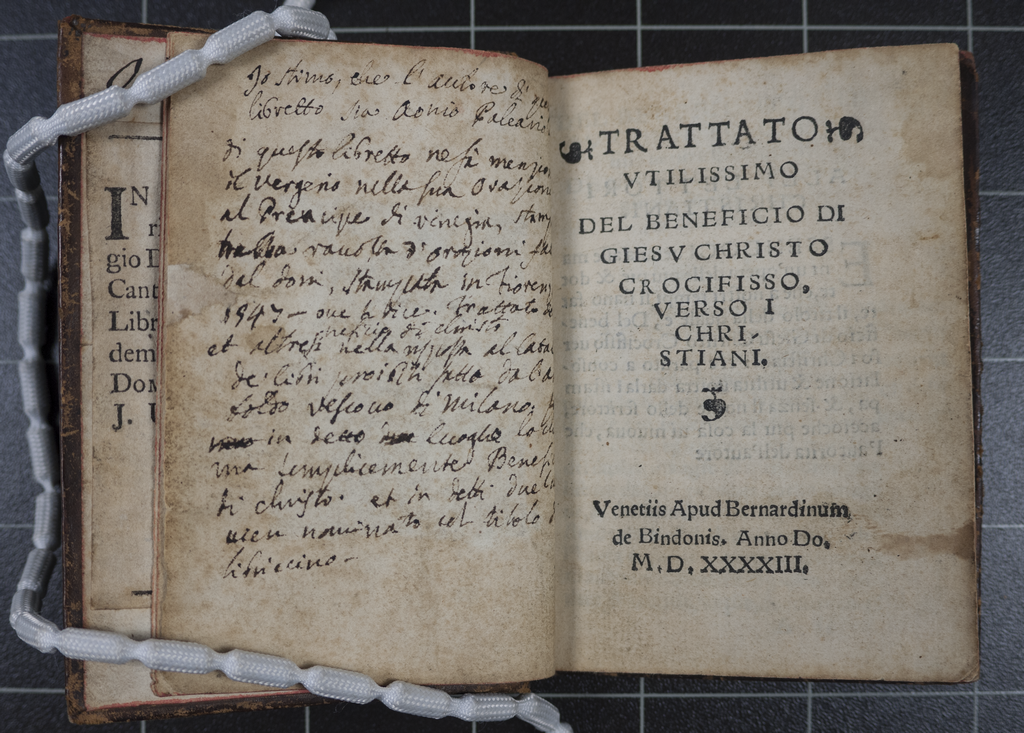 IN
r
gio D
Cant
Libr
dem
Dom
J. U
Io stimo, che l'autore di que
libretto sia Aonio Paleario
di questo libretto ne fà menzio
il Vergerio nella sua Orazione
al Prencipe di Vinegia, stam
raccolta d'orazioni fa
dal doni, stampata in Fioren
1547 – oue la dice. Trattato de
neficio di christo
et altresi nella risposta al Cata
de libri proibiti fatto dal
Vescouo di Milano,
in detto luogho lo
ma semplicemente Benef
di christo. et in detti due
uien nominato col titolo d
libriccino –
TRATTATO
VTILISSIMO
DEL BENEFICIO DI
GIESV CHRISTO
CROCIFISSO,
VERSO I
CHRI.
STIANI.
Venetiis Apud Bernardinum
de Bindonis. Anno Do.
M. D. XXXXIII.